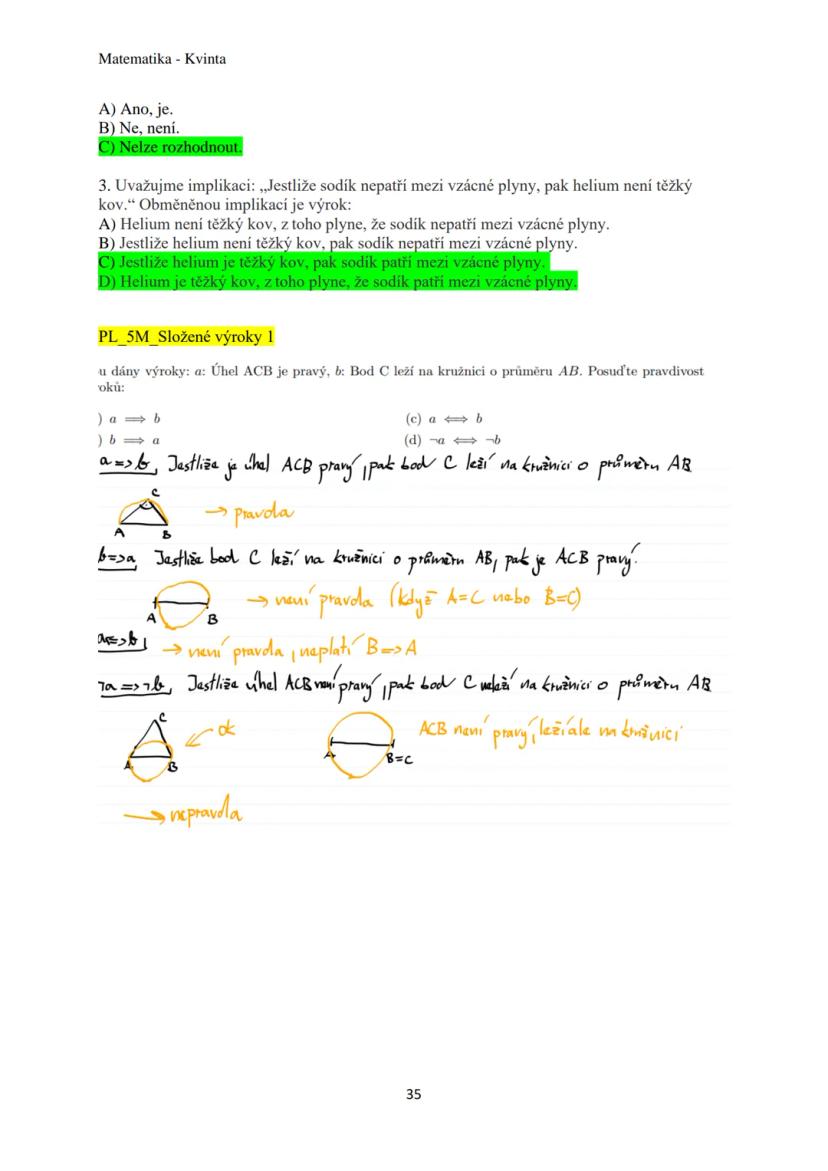 Matematika - Kvinta
A) Ano, je.
B) Ne, není.
C) Nelze rozhodnout.
3. Uvažujme implikaci: „Jestliže sodík nepatří mezi vzácné plyny, pak helium není těžký
kov.“ Obměněnou implikací je výrok:
A) Helium není těžký kov, z toho plyne, že sodík nepatří mezi vzácné plyny.
B) Jestliže helium není těžký kov, pak sodík nepatří mezi vzácné plyny.
C) Jestliže helium je těžký kov, pak sodík patří mezi vzácné plyny.
D) Helium je těžký kov, z toho plyne, že sodík patří mezi vzácné plyny.
PL_5M_Složené výroky 1
u dány výroky: a: Úhel ACB je pravý, b: Bod C leží na kružnici o průměru AB. Posuďte pravdivost
oků:
) a ⟹ b (c) a ⟺ b
) b ⟹ a (d) ¬a ⟺ ¬b
a=>b, Jestliže je úhel ACB pravý, pak bod C leží na kružnici o průměru AB
C
A B
→ pravda
b=>a, Jestliže bod C leží na kružnici o průměru AB, pak je ACB pravý.
A B
→ není pravda (když A=C nebo B=C)
a<=>b, → není pravda, neplatí B=>A
¬a=>¬b, Jestliže úhel ACB není pravý, pak bod C neleží na kružnici o průměru AB
C
A B
ok
A B=C
ACB není pravý, leží ale na kružnici
→ nepravda
35